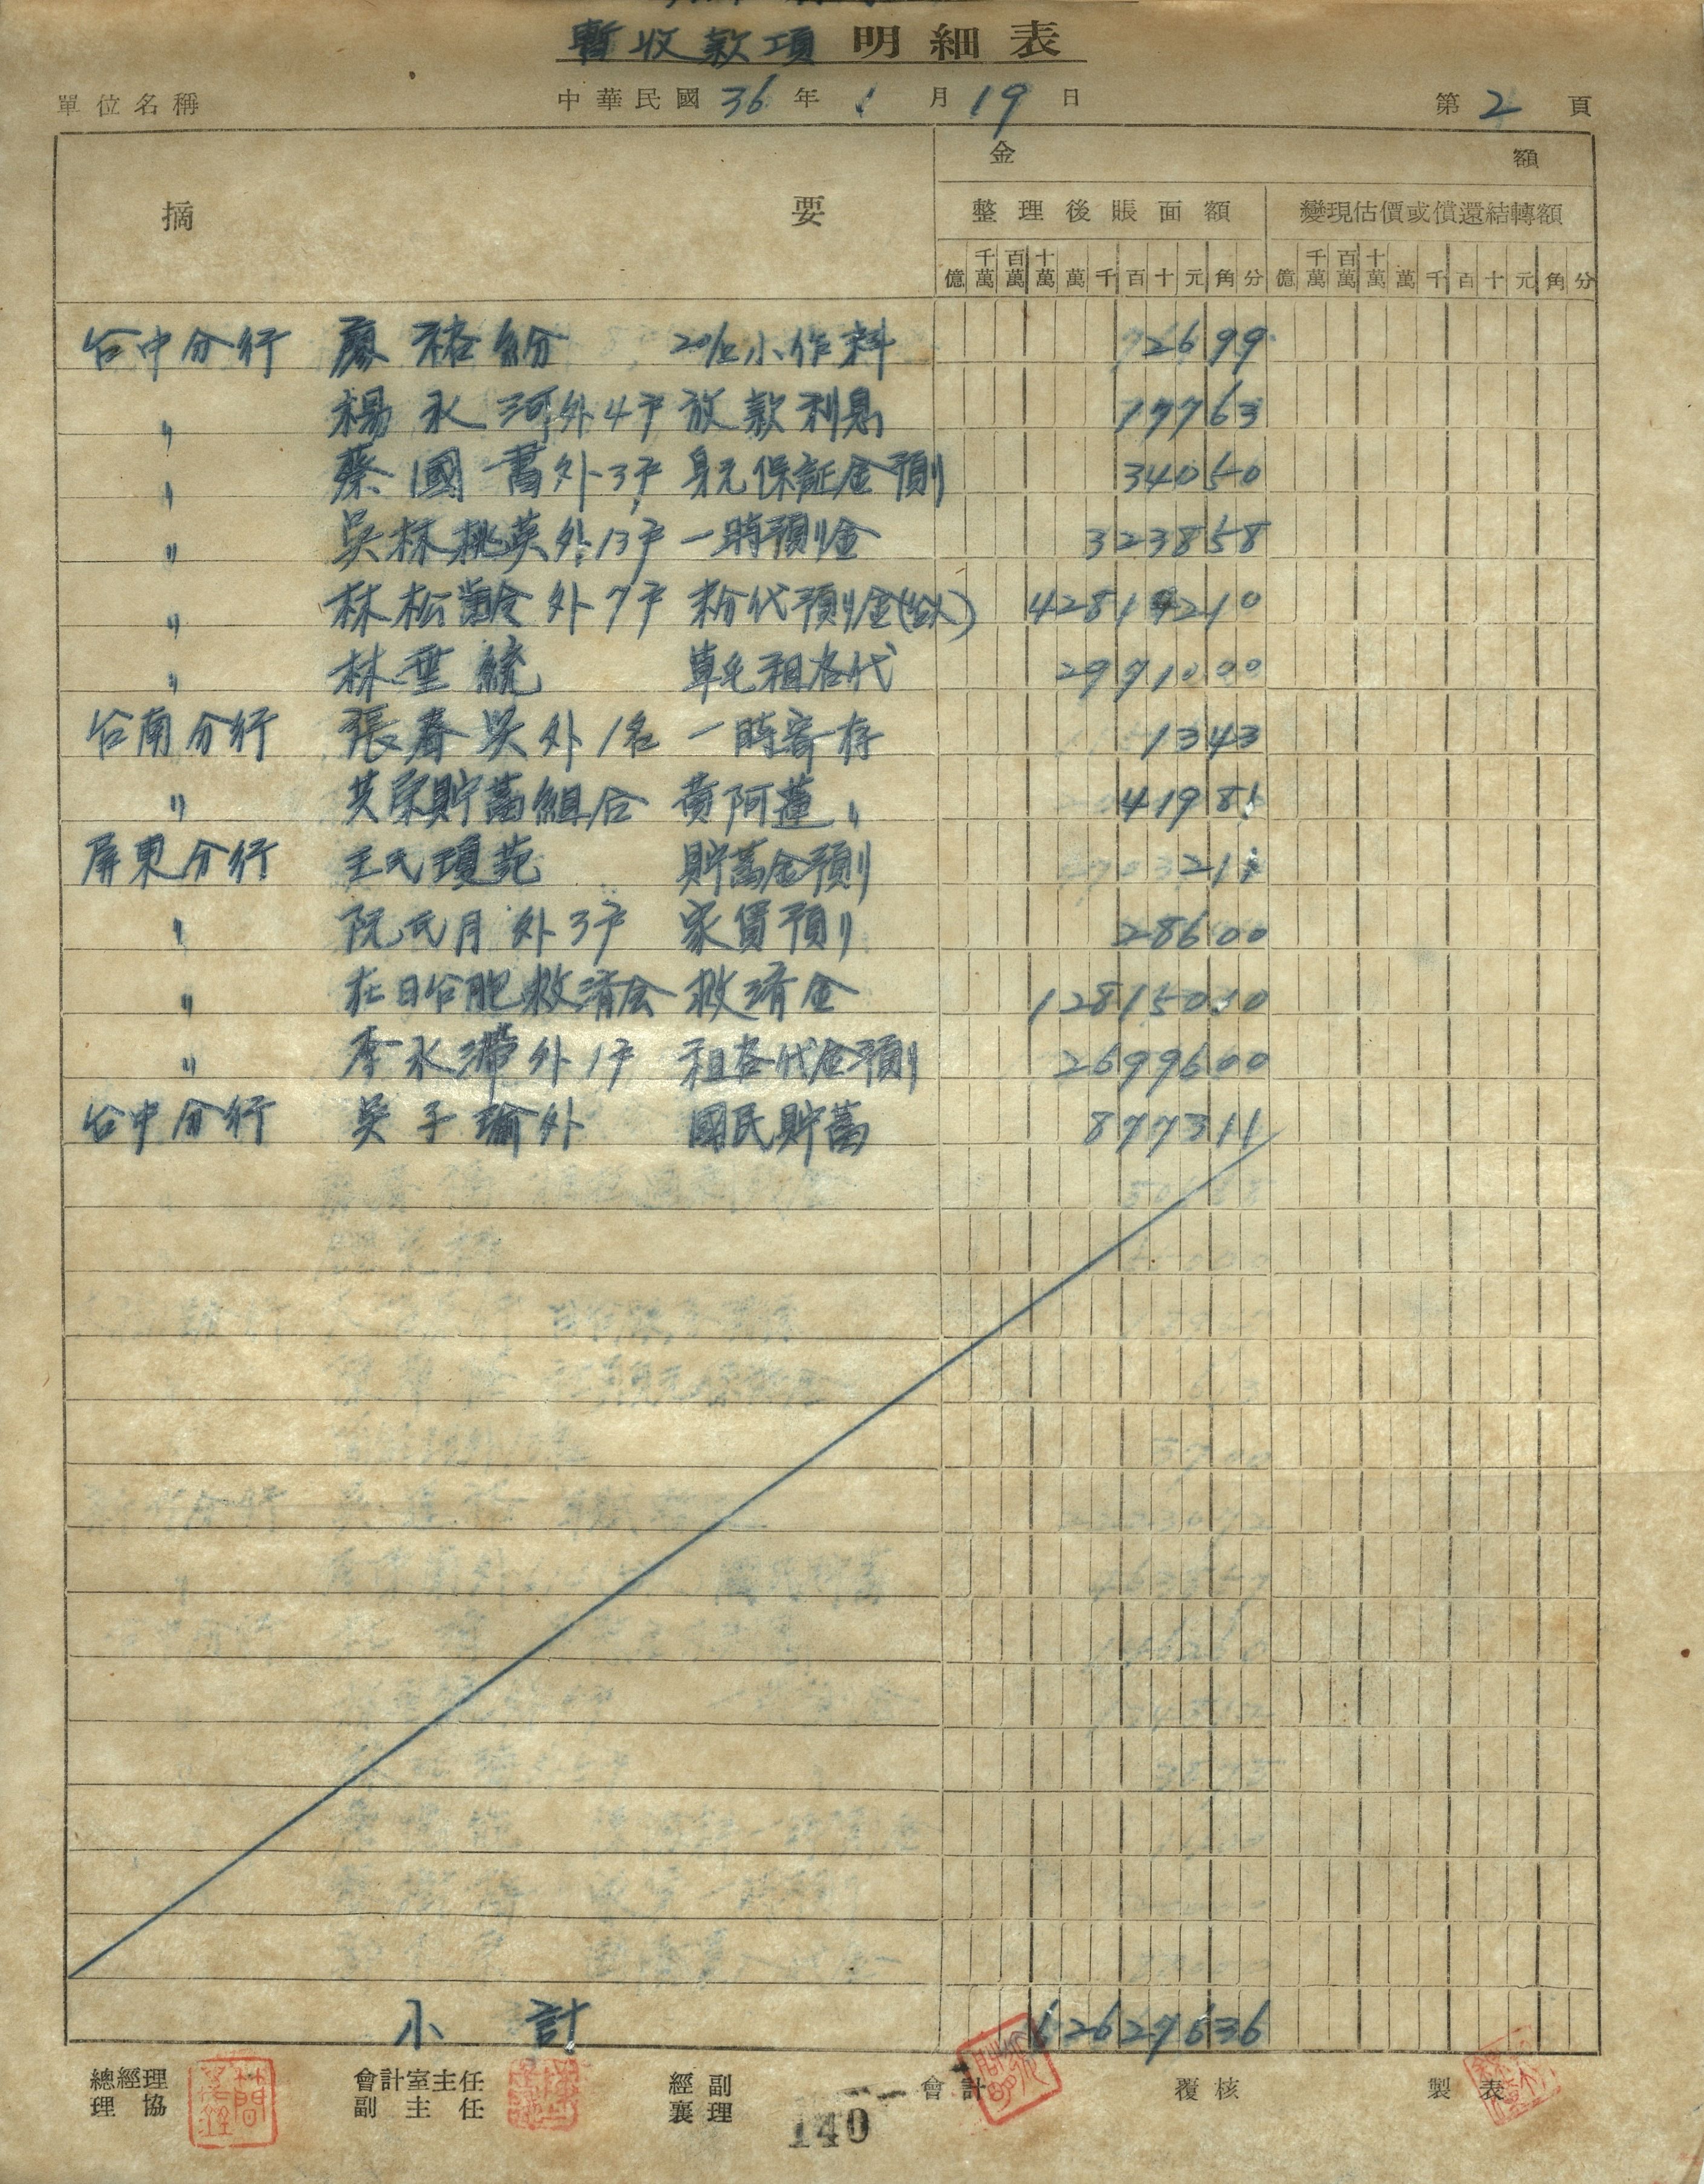 暫收款項 明細表
單位名稱 中華民國 36 年 1 月 19 日 第 2 頁
金 額
摘 要 整理後賬面額 變現估價或償還結轉額
億 千萬 百萬 十萬 萬 千 百 十 元 角 分 億 千萬 百萬 十萬 萬 千 百 十 元 角 分
台中分行 廖裕紛 小作料 72699
〃 楊永河外4戶 放款利息 77763
〃 蔡國書外3戶 身元保証金預リ 34050
〃 吳林桃英外13戶 一時預リ金 323858
〃 林松齡外7戶 粉代預リ金 42814210
〃 林垂統 租谷代 2991000
台南分行 張春吳外1名 一時寄存 1343
〃 共榮貯蓄組合 黃阿蓮〃 41981
屏東分行 王氏瓊苑 貯蓄金預リ 211
〃 阮氏月外3戶 家賃預リ 28600
〃 在日台胞救濟会 救濟金 12815010
〃 李水滯外1戶 租谷代金預リ 2699600
台中分行 吳子瑜外 國民貯蓄 877311
小計 62629636
總經理 協理 會計室主任 副主任 經副襄理 會計 覆核 製表
140